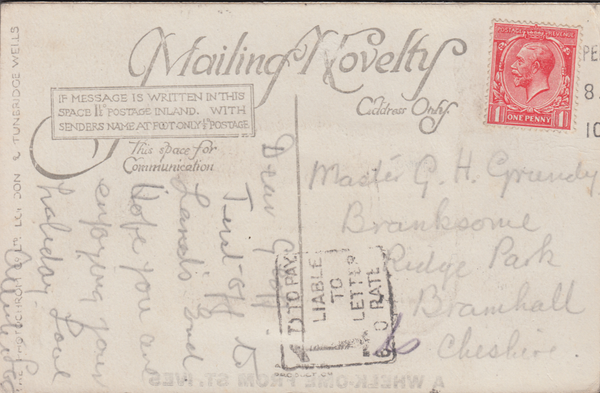 Mailing Novelty
IF MESSAGE IS WRITTEN IN THIS
SPACE 1½D POSTAGE INLAND. WITH
SENDERS NAME AT FOOT ONLY ½D POSTAGE
This space for
Communication
Address Only.
POSTAGE REVENUE
1 ONE PENNY 1
PE
8
10
Dear
Just off to
Lands End
Hope you are
enjoying your
holiday Love
Master G. H. Grundy
Branksome
Ridge Park
Bramhall
Cheshire.
TO PAY
LIABLE
TO
LETTER
RATE
PHOTOCHROM CO. LTD. LONDON & TUNBRIDGE WELLS
A WHELK-OME FROM ST. IVES